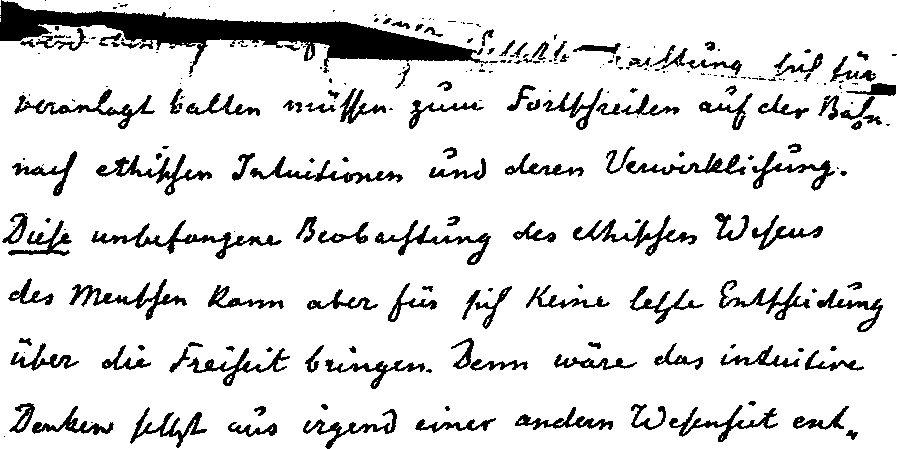 wird einen Selbstbeobachtung sich für
veranlagt halten müssen zum Fortschreiten auf der Bahn
nach ethischen Intuitionen und deren Verwirklichung.
Diese unbefangene Beobachtung des ethischen Wesens
des Menschen kann aber für sich keine letzte Entscheidung
über die Freiheit bringen. Denn wäre das intuitive
Denken selbst aus irgend einer andern Wesenheit ent„